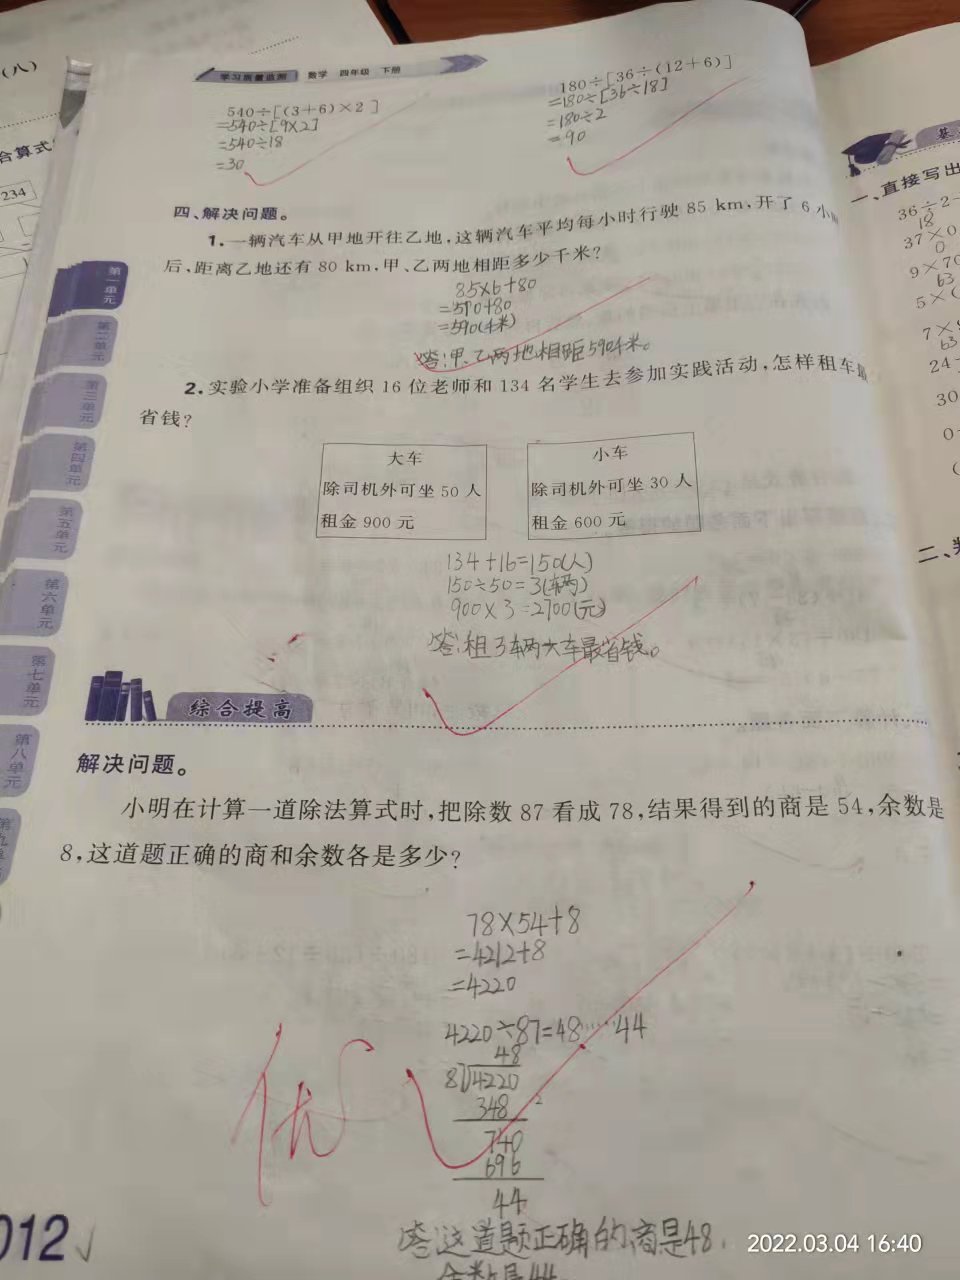 (八)
合算式
234
学习质量监测 数学 四年级 下册
540÷[(3+6)×2]
=540÷[9×2]
=540÷18
=30
180÷[36÷(12+6)]
=180÷[36÷18]
=180÷2
=90
四、解决问题。
1.一辆汽车从甲地开往乙地,这辆汽车平均每小时行驶 85 km,开了 6 小
后,距离乙地还有 80 km,甲、乙两地相距多少千米?
85×6+80
=510+80
=590(千米)
答:甲、乙两地相距590千米。
2.实验小学准备组织 16 位老师和 134 名学生去参加实践活动,怎样租车最
省钱?
大车
除司机外可坐 50 人
租金 900 元
小车
除司机外可坐 30 人
租金 600 元
134+16=150(人)
150÷50=3(辆)
900×3=2700(元)
答:租3车辆大车最省钱。
综合提高
解决问题。
小明在计算一道除法算式时,把除数 87 看成 78,结果得到的商是 54,余数是
8,这道题正确的商和余数各是多少?
78×54+8
=4212+8
=4220
4220÷87=48……44
48
87 4220
348
2
740
696
44
优
答:这道题正确的商是48,
余数是44
第一单元
第二单元
第三单元
第四单元
第五单元
第六单元
第七单元
第八单元
012
一、直接写出
36÷2
18
37×0
0
9×70
63
5×(
7×
63
24
30
0
二、
2022.03.04 16:40